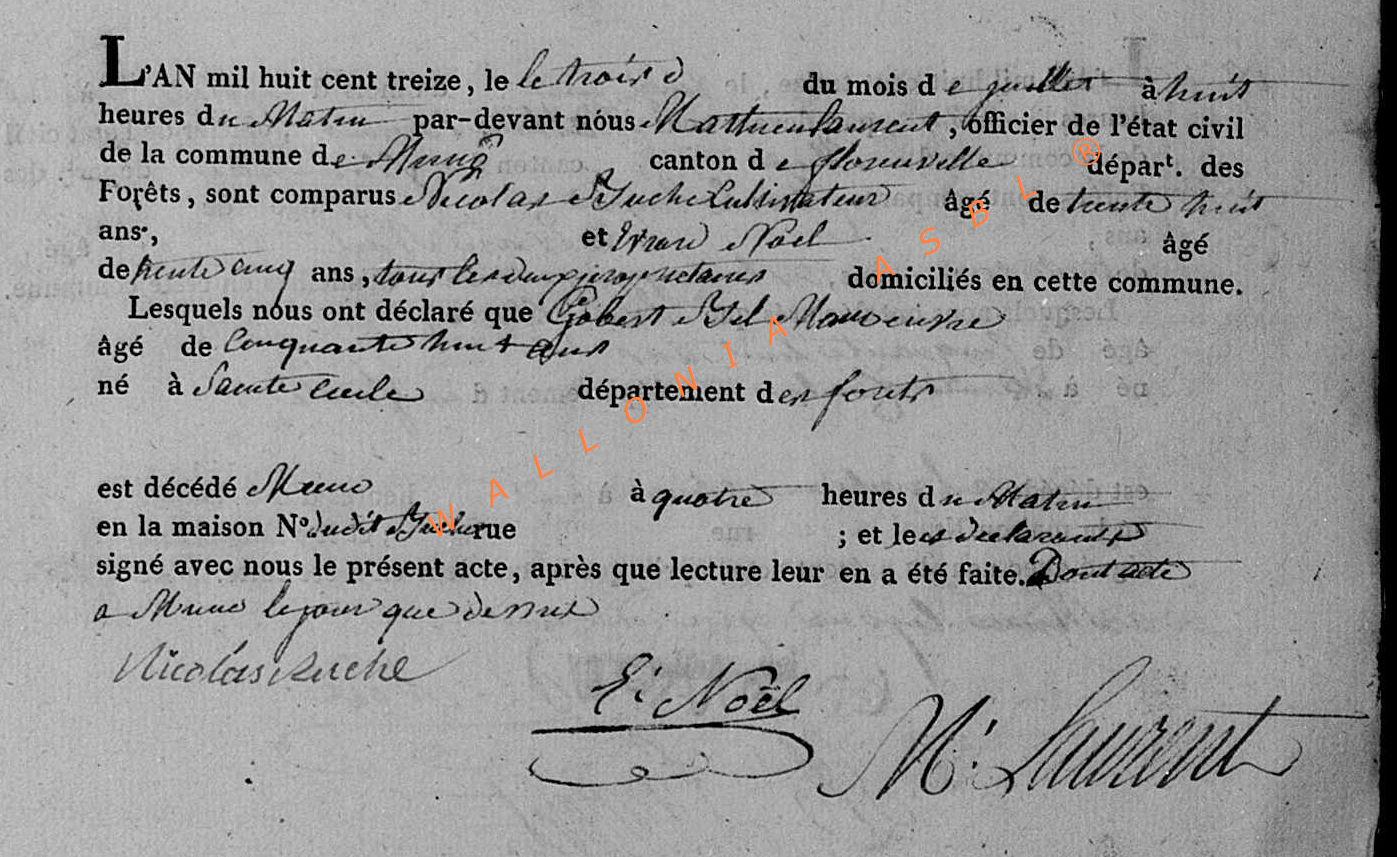 L'AN mil huit cent treize, le le trois d du mois de juillet à huit
heures du Matin par-devant nous Mathieu Laurent, officier de l'état civil
de la commune de Muno canton de florenville dépar^t. des
Forêts, sont comparus Nicolas Suche Cultivateur âgé de trente huit
ans, et Evrard Noël âgé
de trente cinq ans, tous les deux proprietaires domiciliés en cette commune.
Lesquels nous ont déclaré que Gobert
âgé de Cinquante huit ans
né à Sainte Cecile département des forets
est décédé Muno à quatre heures du Matin
en la maison N° dudit Suche rue ; et les declarants
signé avec nous le présent acte, après que lecture leur en a été faite. Dont acte
a Muno le jour que dessus
Nicolas Suche
E: Noël
M: Laurent
WALLONIA ASBL ®